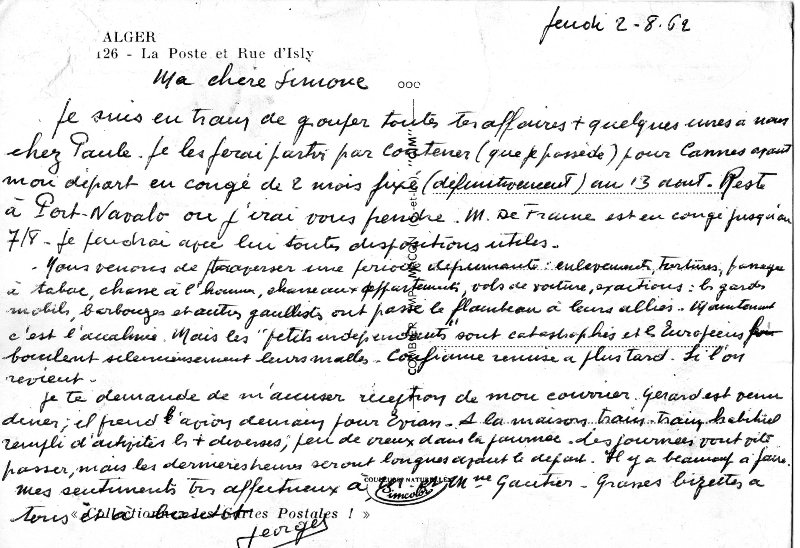 Jeudi 2-8-62
ALGER
126 - La Poste et Rue d'Isly
Ma chère Simone
Je suis en train de grouper toutes tes affaires + quelques unes à nous
chez Paule. Je les ferai partir par container (que je possède) pour Cannes avant
mon départ en congé de 2 mois fixé (définitivement) au 13 aout. Reste
à Port-Navalo ou j'irai vous prendre. M. De Fraine est en congé jusqu'au
7/8 - Je prendrai avec lui toutes dispositions utiles -
- Nous venons de traverser une période déprimante : enlevements, tortures, passage
à tabac, chasse à l'homme, chasse aux appartements, vols de voiture, exactions : les gardes
mobils, barbouzes et autres gaullistes ont passé le flambeau à leurs alliés - Maintenant
c'est l'accalmie. Mais les "petits indépendants" sont catastrophés et les Européens
bouclent silencieusement leurs malles - Confiance remise a plus tard. Si l'on
revient -
Je te demande de m'accuser réception de mon courrier. Gérard est venu
diner ; il prend l'avion demain pour Evian - A la maison train-train habituel
rempli d'activités les + diverses, peu de creux dans la journée - Les journées vont vite
passer, mais les dernières heures seront longues avant le départ - Il y a beaucoup à faire.
Mes sentiments très affectueux à Mme Gautier - Grosses bizettes a
tous
« Collectionnez les Cartes Postales ! »
Georges
COULEURS NATURELLES
Cimcolor